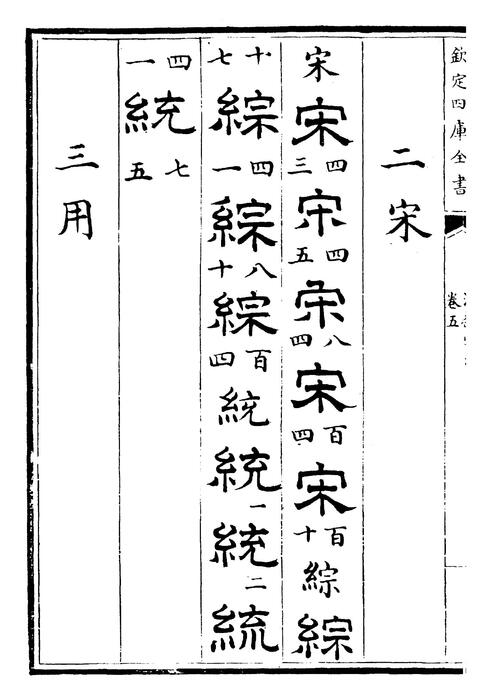 欽定四庫全書
卷五
二宋
宋宋四三宋四五宋八四宋百四宋百十綜綜
十七綜四一綜八十綜百四統統一統二統
四一統七五
三用